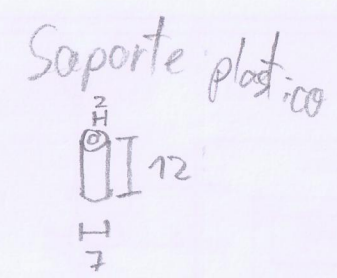 Soporte plastico
2
12
7